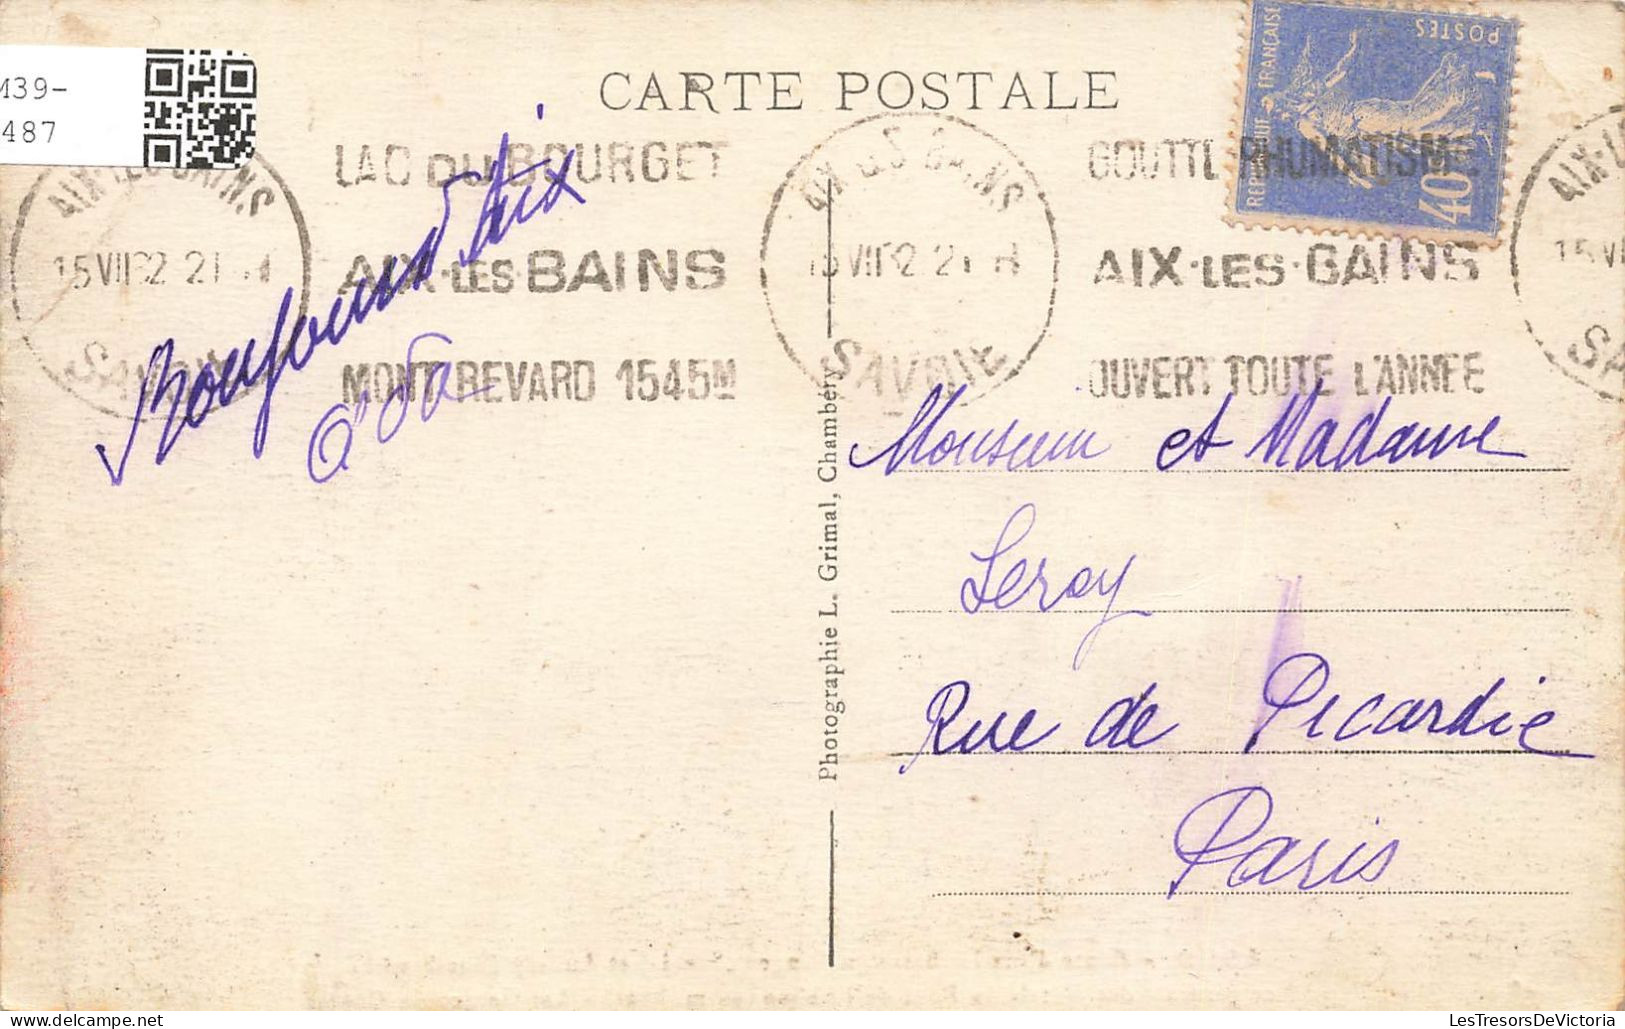 M39-
487
CARTE POSTALE
LAC DU BOURGET
AIX·LES·BAINS
MONT REVARD 1545M
AIX·LES·BAINS
15 VII 32 21 H
SAVOIE
AIX LES BAINS
15 VII 32 21 H
SAVOIE
GOUTTE RHUMATISME
AIX·LES·BAINS
OUVERT TOUTE L'ANNÉE
REPUBLIQUE FRANÇAISE
POSTES
40c
Bonjour d'Aix
Photographie L. Grimal, Chambéry
Monsieur et Madame
Leroy
Rue de Picardie
Paris
LesTresorsDeVictoria